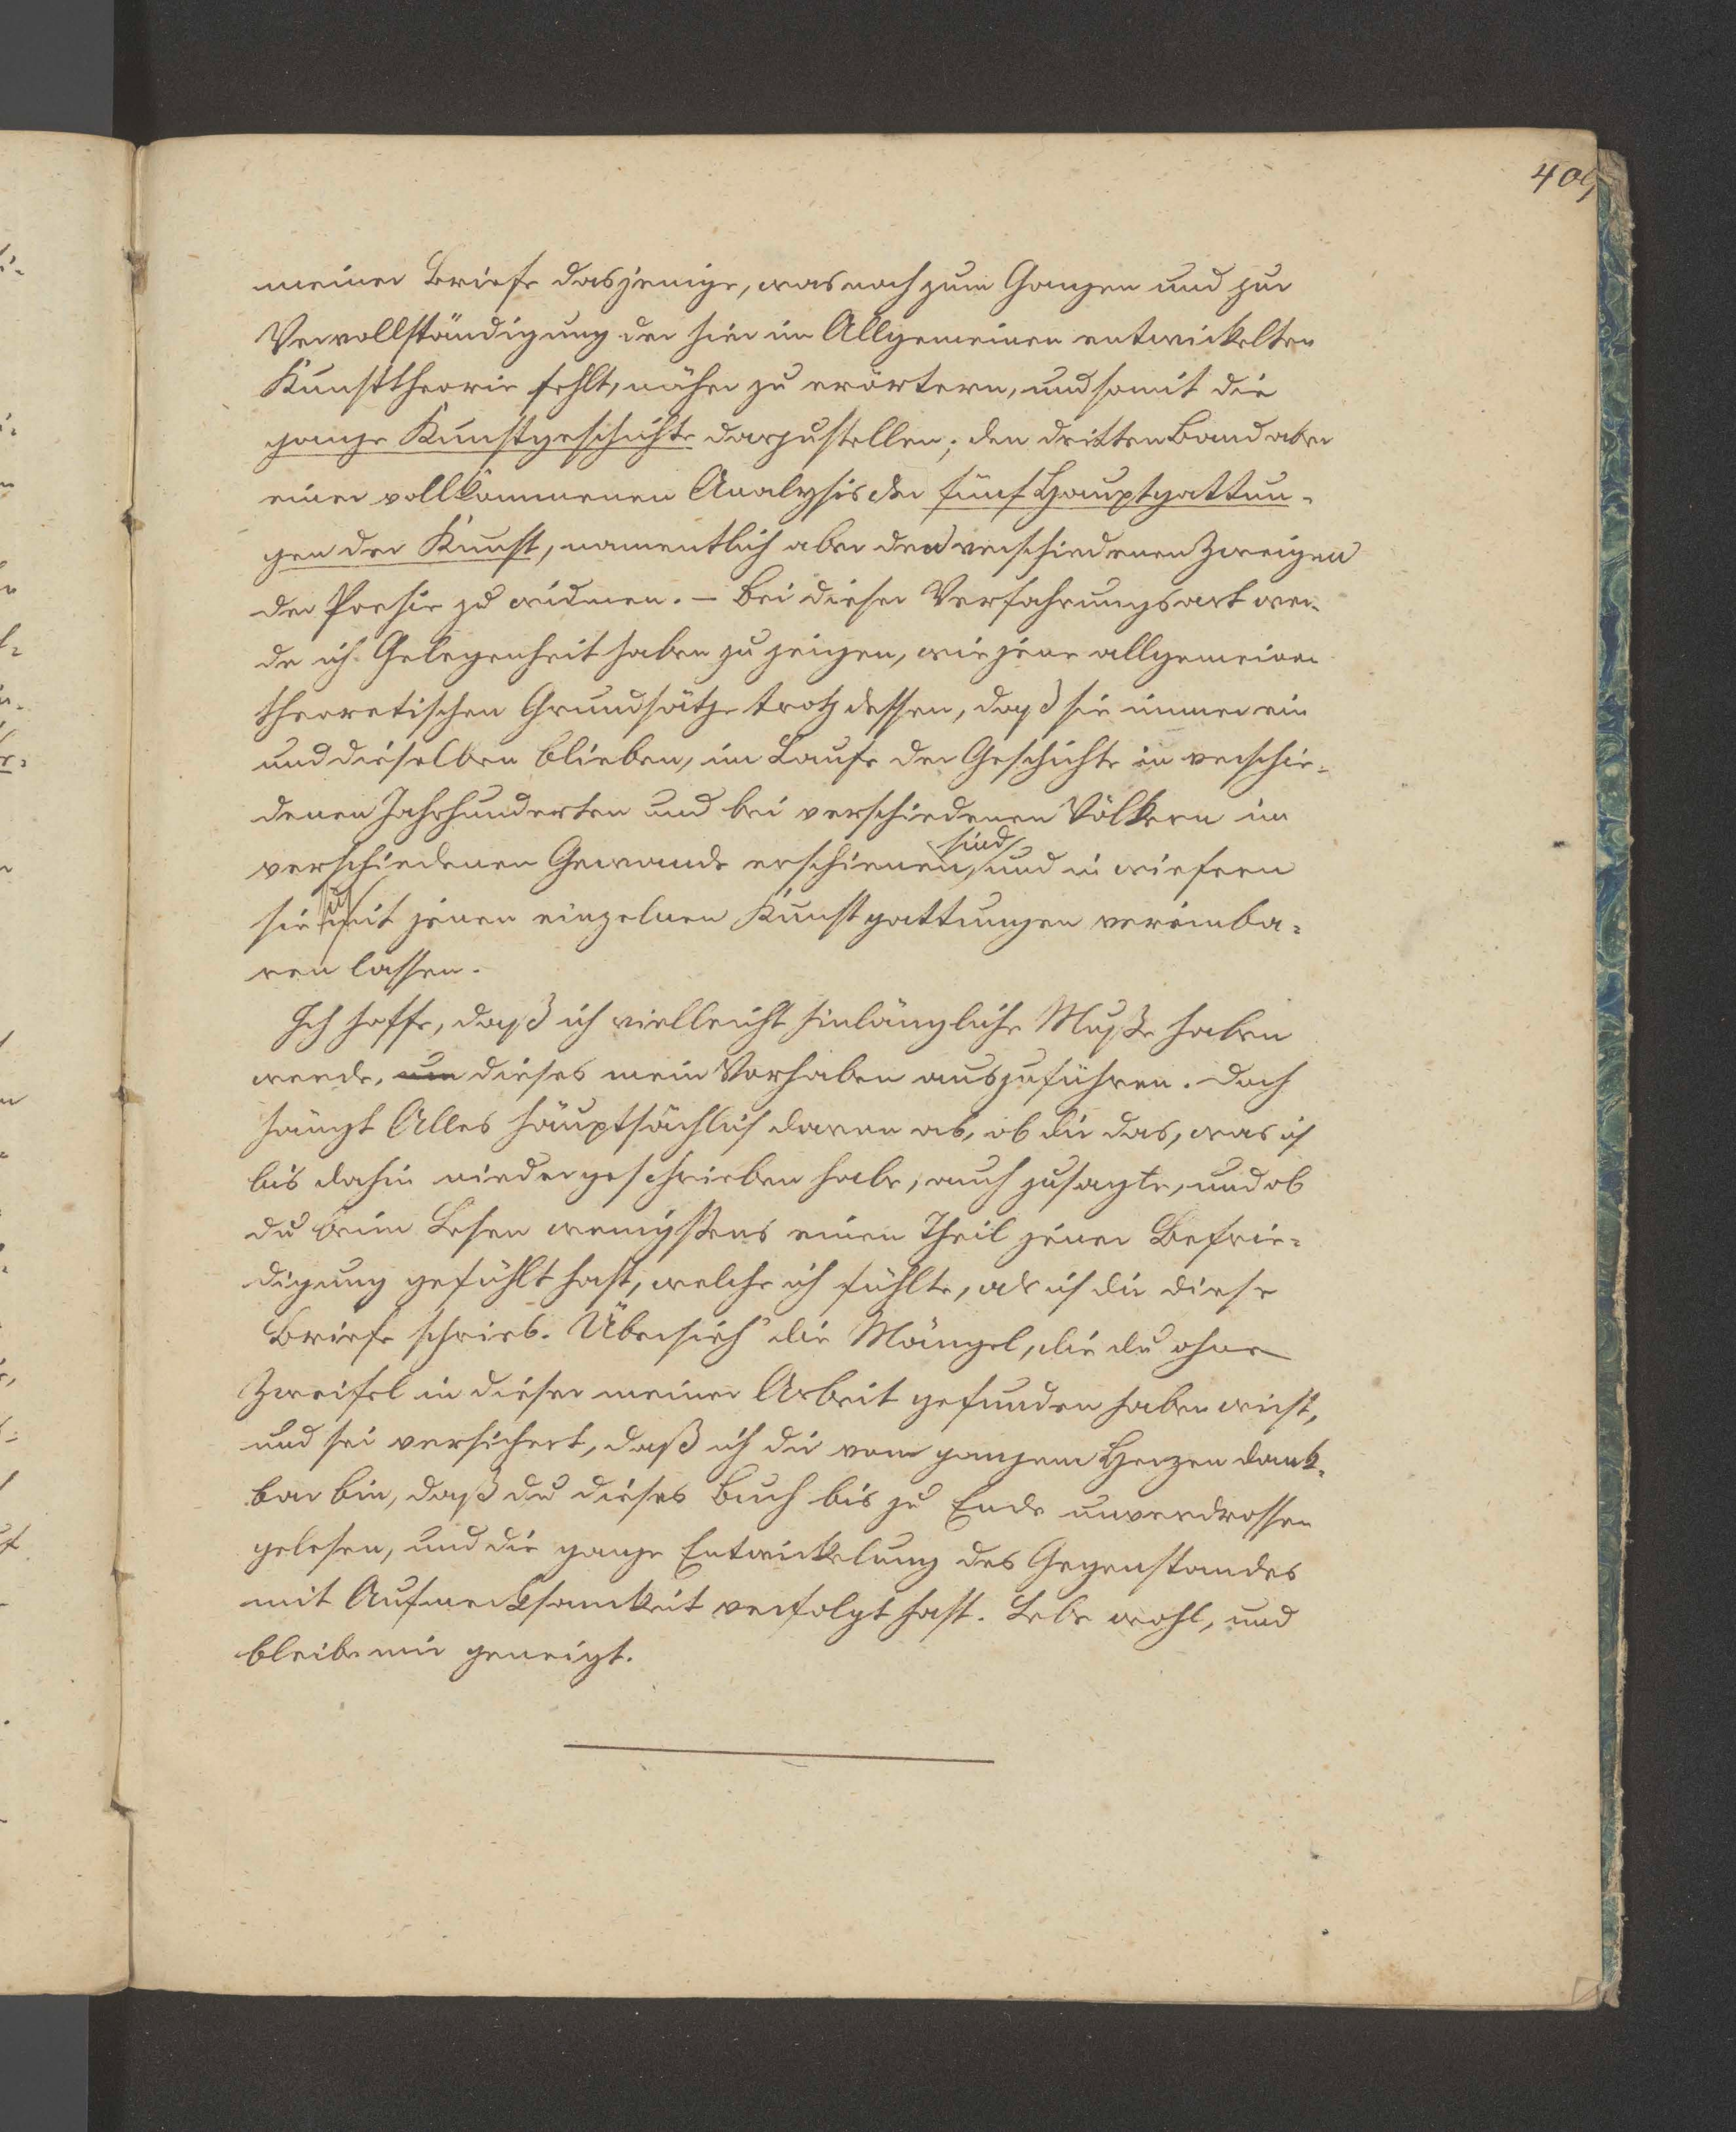 409
meiner Briefe dasjenige, was noch zum Ganzen und zur
Vervollständigung der hier im Allgemeinen entwickelten
Kunsttheorie fehlt, näher zu erörtern, und somit die
ganze Kunstgeschichte darzustellen; den dritten Band aber
einer vollkommenen Analysis der fünf Hauptgattun-
gen der Kunst, namentlich aber den verschiedenen Zweigen
der Poesie zu widmen. – Bei dieser Verfahrungsart wer-
de ich Gelegenheit haben zu zeigen, wie jene allgemeinen
theoretischen Grundsätze trotz dessen, daß sie immer ein
und dieselben blieben, im Laufe der Geschichte in verschie-
denen Jahrhunderten und bei verschiedenen Völkern im
sind
verschiedenen Gewande erschienen, und in wiefern
sie mit jenen einzelnen Kunstgattungen vereinba-
ren lassen.
Ich hoffe, daß ich vielleicht hinlängliche Muße haben
werde, um dieses mein Vorhaben auszuführen. Doch
hängt Alles hauptsächlich davon ab, ob dir das, was ich
bis dahin niedergeschrieben habe, auch zusagte, und ob
du beim Lesen wenigstens einen Theil jener Befrie-
digung gefühlt hast, welche ich fühlte, als ich dir diese
Briefe schrieb. Übersieh' die Mängel, die du ohne
Zweifel in dieser meiner Arbeit gefunden haben wirst,
und sei versichert, daß ich dir vom ganzem Herzen dank-
bar bin, daß du dieses Buch bis zu Ende unverdrossen
gelesen, und die ganze Entwickelung des Gegenstandes
mit Aufmerksamkeit verfolgt hast. Lebe wohl, und
bleibe mir geneigt.